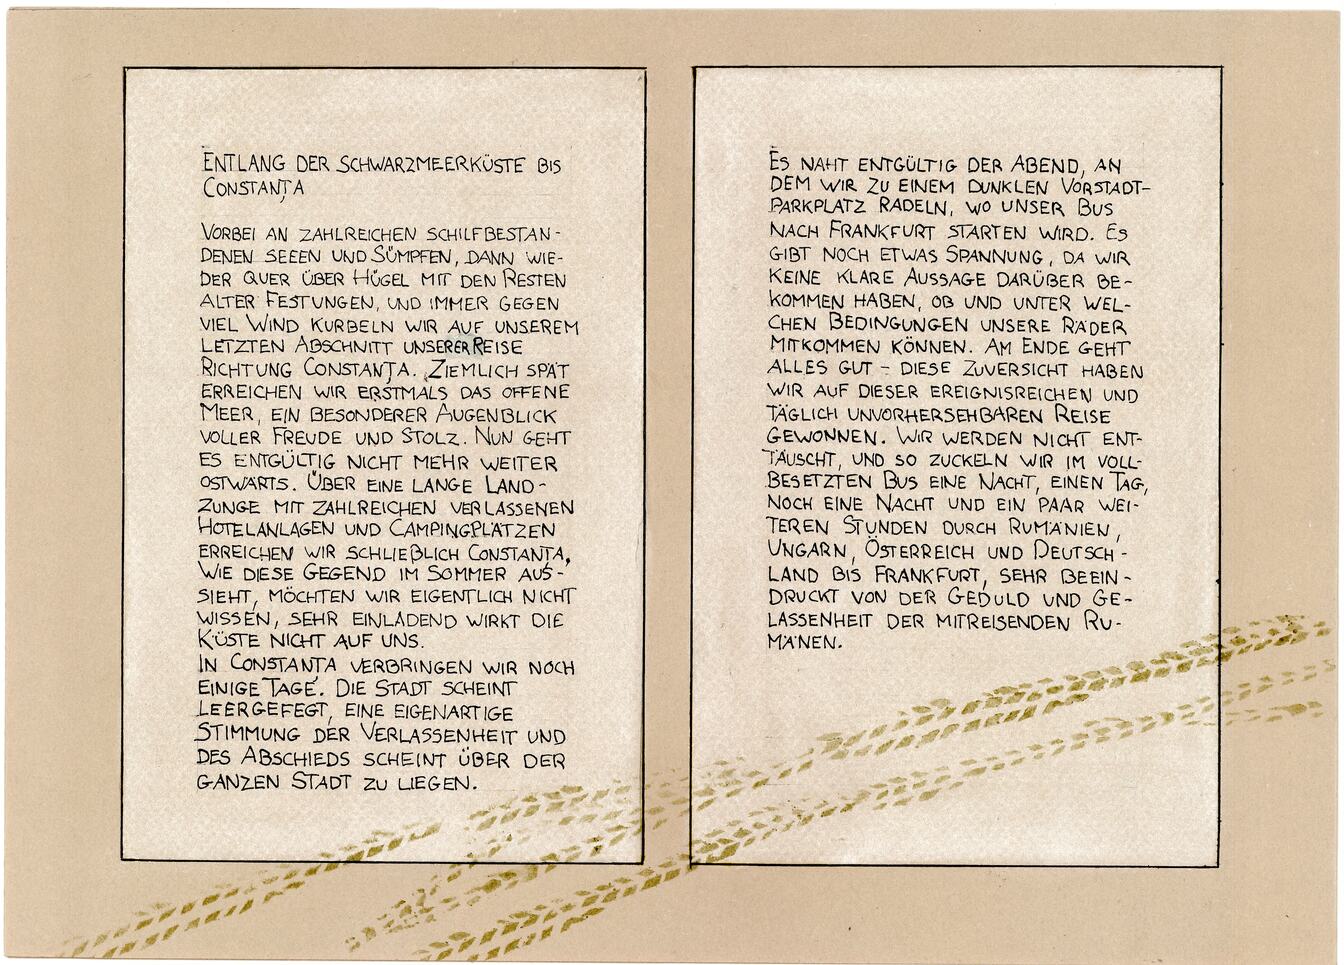 ENTLANG DER SCHWARZMEERKÜSTE BIS
CONSTANȚA
VORBEI AN ZAHLREICHEN SCHILFBESTAN-
DENEN SEEEN UND SÜMPFEN, DANN WIE-
DER QUER ÜBER HÜGEL MIT DEN RESTEN
ALTER FESTUNGEN, UND IMMER GEGEN
VIEL WIND KURBELN WIR AUF UNSEREM
LETZTEN ABSCHNITT UNSERER REISE
RICHTUNG CONSTANȚA. ZIEMLICH SPÄT
ERREICHEN WIR ERSTMALS DAS OFFENE
MEER, EIN BESONDERER AUGENBLICK
VOLLER FREUDE UND STOLZ. NUN GEHT
ES ENTGÜLTIG NICHT MEHR WEITER
OSTWÄRTS. ÜBER EINE LANGE LAND-
ZUNGE MIT ZAHLREICHEN VERLASSENEN
HOTELANLAGEN UND CAMPINGPLÄTZEN
ERREICHEN WIR SCHLIEßLICH CONSTANȚA,
WIE DIESE GEGEND IM SOMMER AUS-
SIEHT, MÖCHTEN WIR EIGENTLICH NICHT
WISSEN, SEHR EINLADEND WIRKT DIE
KÜSTE NICHT AUF UNS.
IN CONSTANȚA VERBRINGEN WIR NOCH
EINIGE TAGE. DIE STADT SCHEINT
LEERGEFEGT, EINE EIGENARTIGE
STIMMUNG DER VERLASSENHEIT UND
DES ABSCHIEDS SCHEINT ÜBER DER
GANZEN STADT ZU LIEGEN.
ES NAHT ENTGÜLTIG DER ABEND, AN
DEM WIR ZU EINEM DUNKLEN VORSTADT-
PARKPLATZ RADELN, WO UNSER BUS
NACH FRANKFURT STARTEN WIRD. ES
GIBT NOCH ETWAS SPANNUNG, DA WIR
KEINE KLARE AUSSAGE DARÜBER BE-
KOMMEN HABEN, OB UND UNTER WEL-
CHEN BEDINGUNGEN UNSERE RÄDER
MITKOMMEN KÖNNEN. AM ENDE GEHT
ALLES GUT - DIESE ZUVERSICHT HABEN
WIR AUF DIESER EREIGNISREICHEN UND
TÄGLICH UNVORHERSEHBAREN REISE
GEWONNEN. WIR WERDEN NICHT ENT-
TÄUSCHT, UND SO ZUCKELN WIR IM VOLL-
BESETZTEN BUS EINE NACHT, EINEN TAG,
NOCH EINE NACHT UND EIN PAAR WEI-
TEREN STUNDEN DURCH RUMÄNIEN,
UNGARN, ÖSTERREICH UND DEUTSCH-
LAND BIS FRANKFURT, SEHR BEEIN-
DRUCKT VON DER GEDULD UND GE-
LASSENHEIT DER MITREISENDEN RU-
MÄNEN.